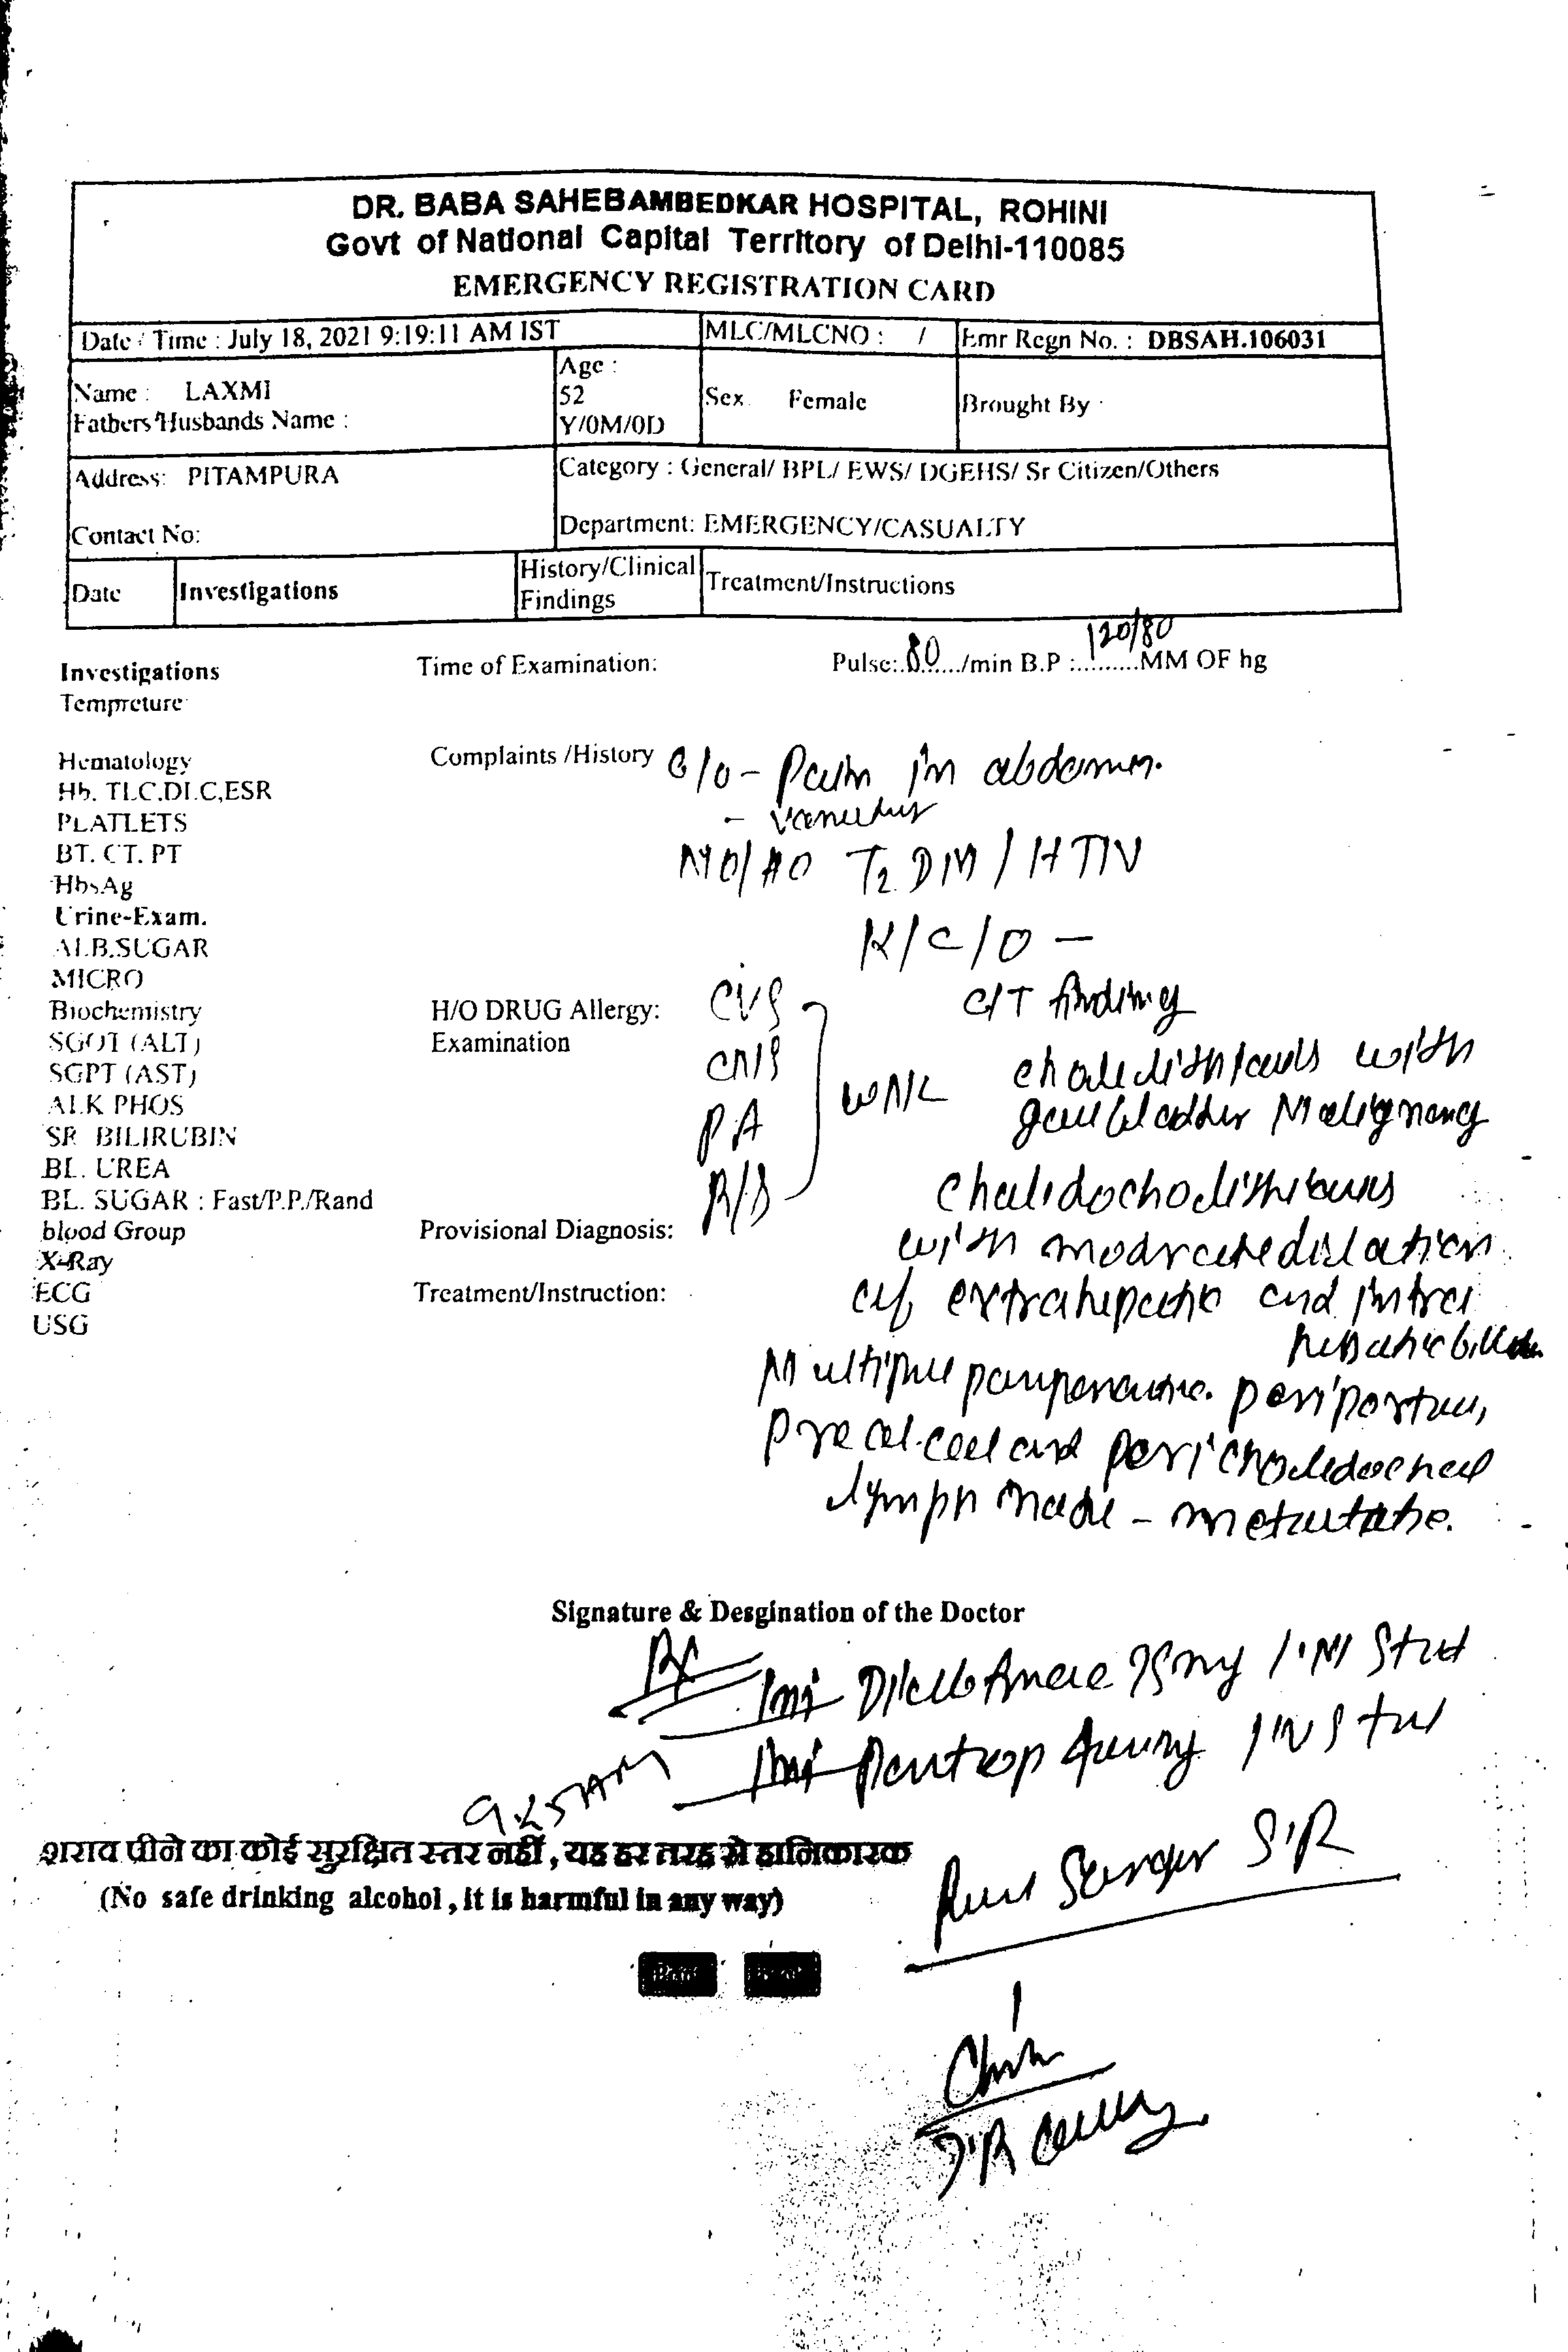 DR. BABA SAHEBAMBEDKAR HOSPITAL, ROHINI
Govt of National Capital Territory of Delhi-110085
EMERGENCY REGISTRATION CARD
Date / Time : July 18, 2021 9:19:11 AM IST MLC/MLCNO : / Emr Regn No. : DBSAH.106031
Name : LAXMI
Fathers/Husbands Name :
Age :
52
Y/0M/0D
Sex Female
Brought By :
Address: PITAMPURA
Contact No:
Category : General/ BPL/ EWS/ DGEHS/ Sr Citizen/Others
Department: EMERGENCY/CASUALTY
Date Investigations History/Clinical Findings Treatment/Instructions
Investigations Time of Examination: Pulse:.80..../min B.P :.120/80.MM OF hg
Tempreture
Hematology
Hb. TLC.DLC,ESR
PLATLETS
BT. CT. PT
HbsAg
Urine-Exam.
ALB.SUGAR
MICRO
Biochemistry
SGOT (ALT)
SGPT (AST)
ALK PHOS
SR BILIRUBIN
BL. UREA
BL. SUGAR : Fast/P.P./Rand
blood Group
X-Ray
ECG
USG
Complaints /History C/o - Pain in abdomen.
-
NO/HO T2 DM / HTN
K/C/O -
H/O DRUG Allergy:
Examination
CVS
CNS
PA
R/S
WNL
C/T finding
with
gallbladder Malignancy
with moderate dilation
of extrahepatic and intra
hepatic
Multiple periportal,
and pericholedochal
lymph node - metastatic.
Provisional Diagnosis:
Treatment/Instruction:
Signature & Desgination of the Doctor
Rx
Inj 75mg IM Stat
Inj Pantop 40mg IV Stat
9:25AM
शराब पीने का कोई सुरक्षित स्तर नहीं, यह हर तरह से हानिकारक
(No safe drinking alcohol , it is harmful in any way)
S'R